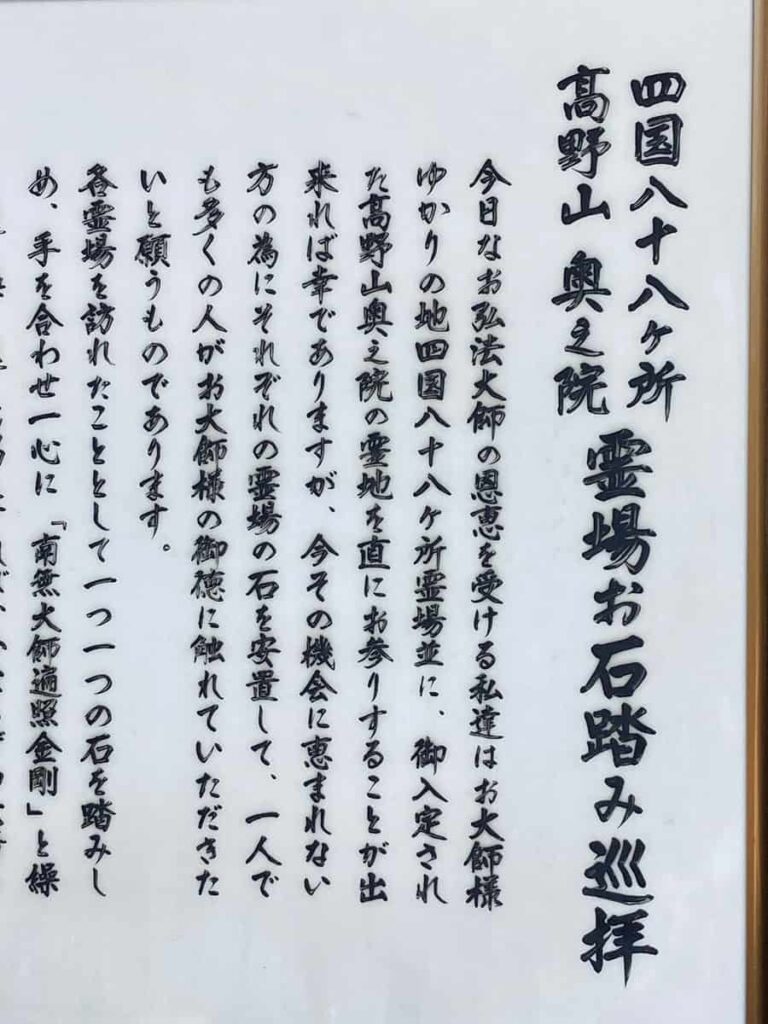 四国八十八ヶ所
高野山 奥之院
霊場お石踏み巡拝
今日なお弘法大師の恩恵を受ける私達はお大師様
ゆかりの地四国八十八ヶ所霊場並に、御入定され
た高野山奥之院の霊地を直にお参りすることが出
来れば幸でありますが、今その機会に恵まれない
方の為にそれぞれの霊場の石を安置して、一人で
も多くの人がお大師様の御徳に触れていただきた
いと願うものであります。
各霊場を訪れたこととして一つ一つの石を踏みし
め、手を合わせ一心に「南無大師遍照金剛」と繰